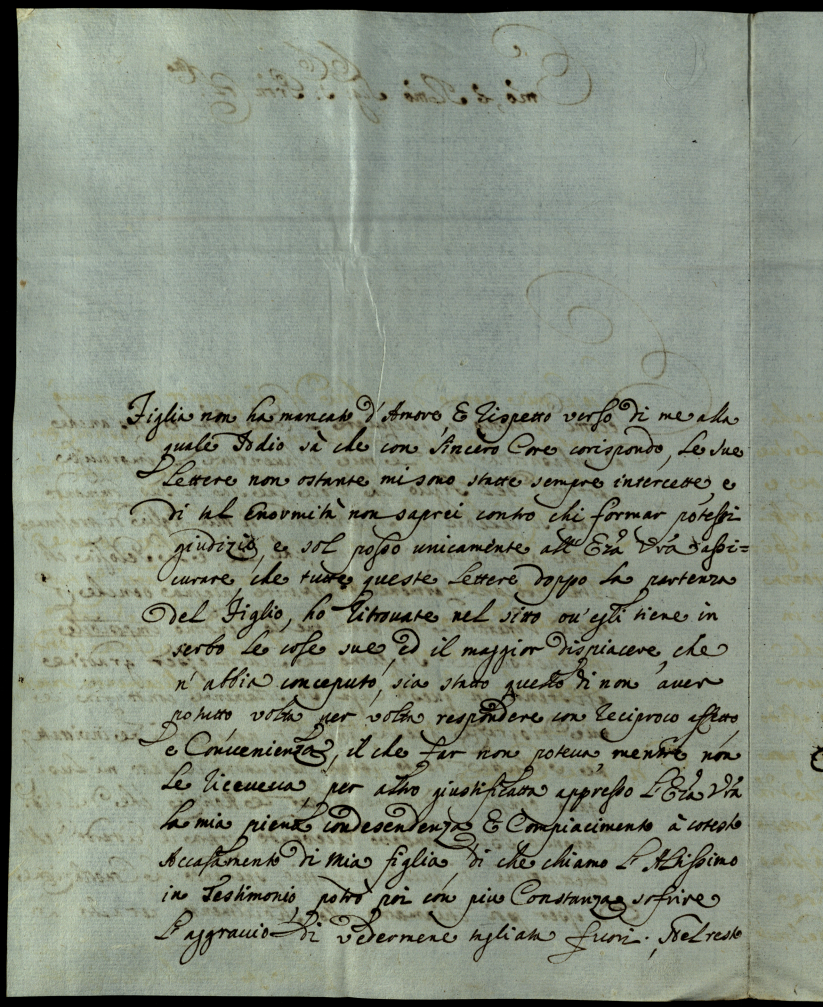 Figlia non ha mancato d'Amore, E rispetto verso di me alla
quale Iddio sà che con sincero Core corispondo, Le sue
Lettere non ostante, mi sono statte sempre intercette, e
di tal Enormità non saprei contro chi formar potessi
giudizio, e sol posso unicamente all' Eza Vra assi=
curare, che tutte queste Lettere doppo la partenza
del Figlio, ho ritrovate nel sitto ou'egli tiene in
serbo le cose sue, ed il maggior dispiacere, che
n'abbia conceputo, sia statto questo di non aver
potutto volta per volta respondere con reciproco affetto
e Convenienza, il che far non poteva, mentre non
Le riceveva, per altro giustificatta appresso L'Eza Vra
la mia piena condesendenza, E Compiacimento à cotesto
Accasamento di mia figlia, di che chiamo L'Altissimo
in Testimonio, potrò poi con piu Constanza sofrire
L'aggravio di vedermene tagliata fuori. Nel resto